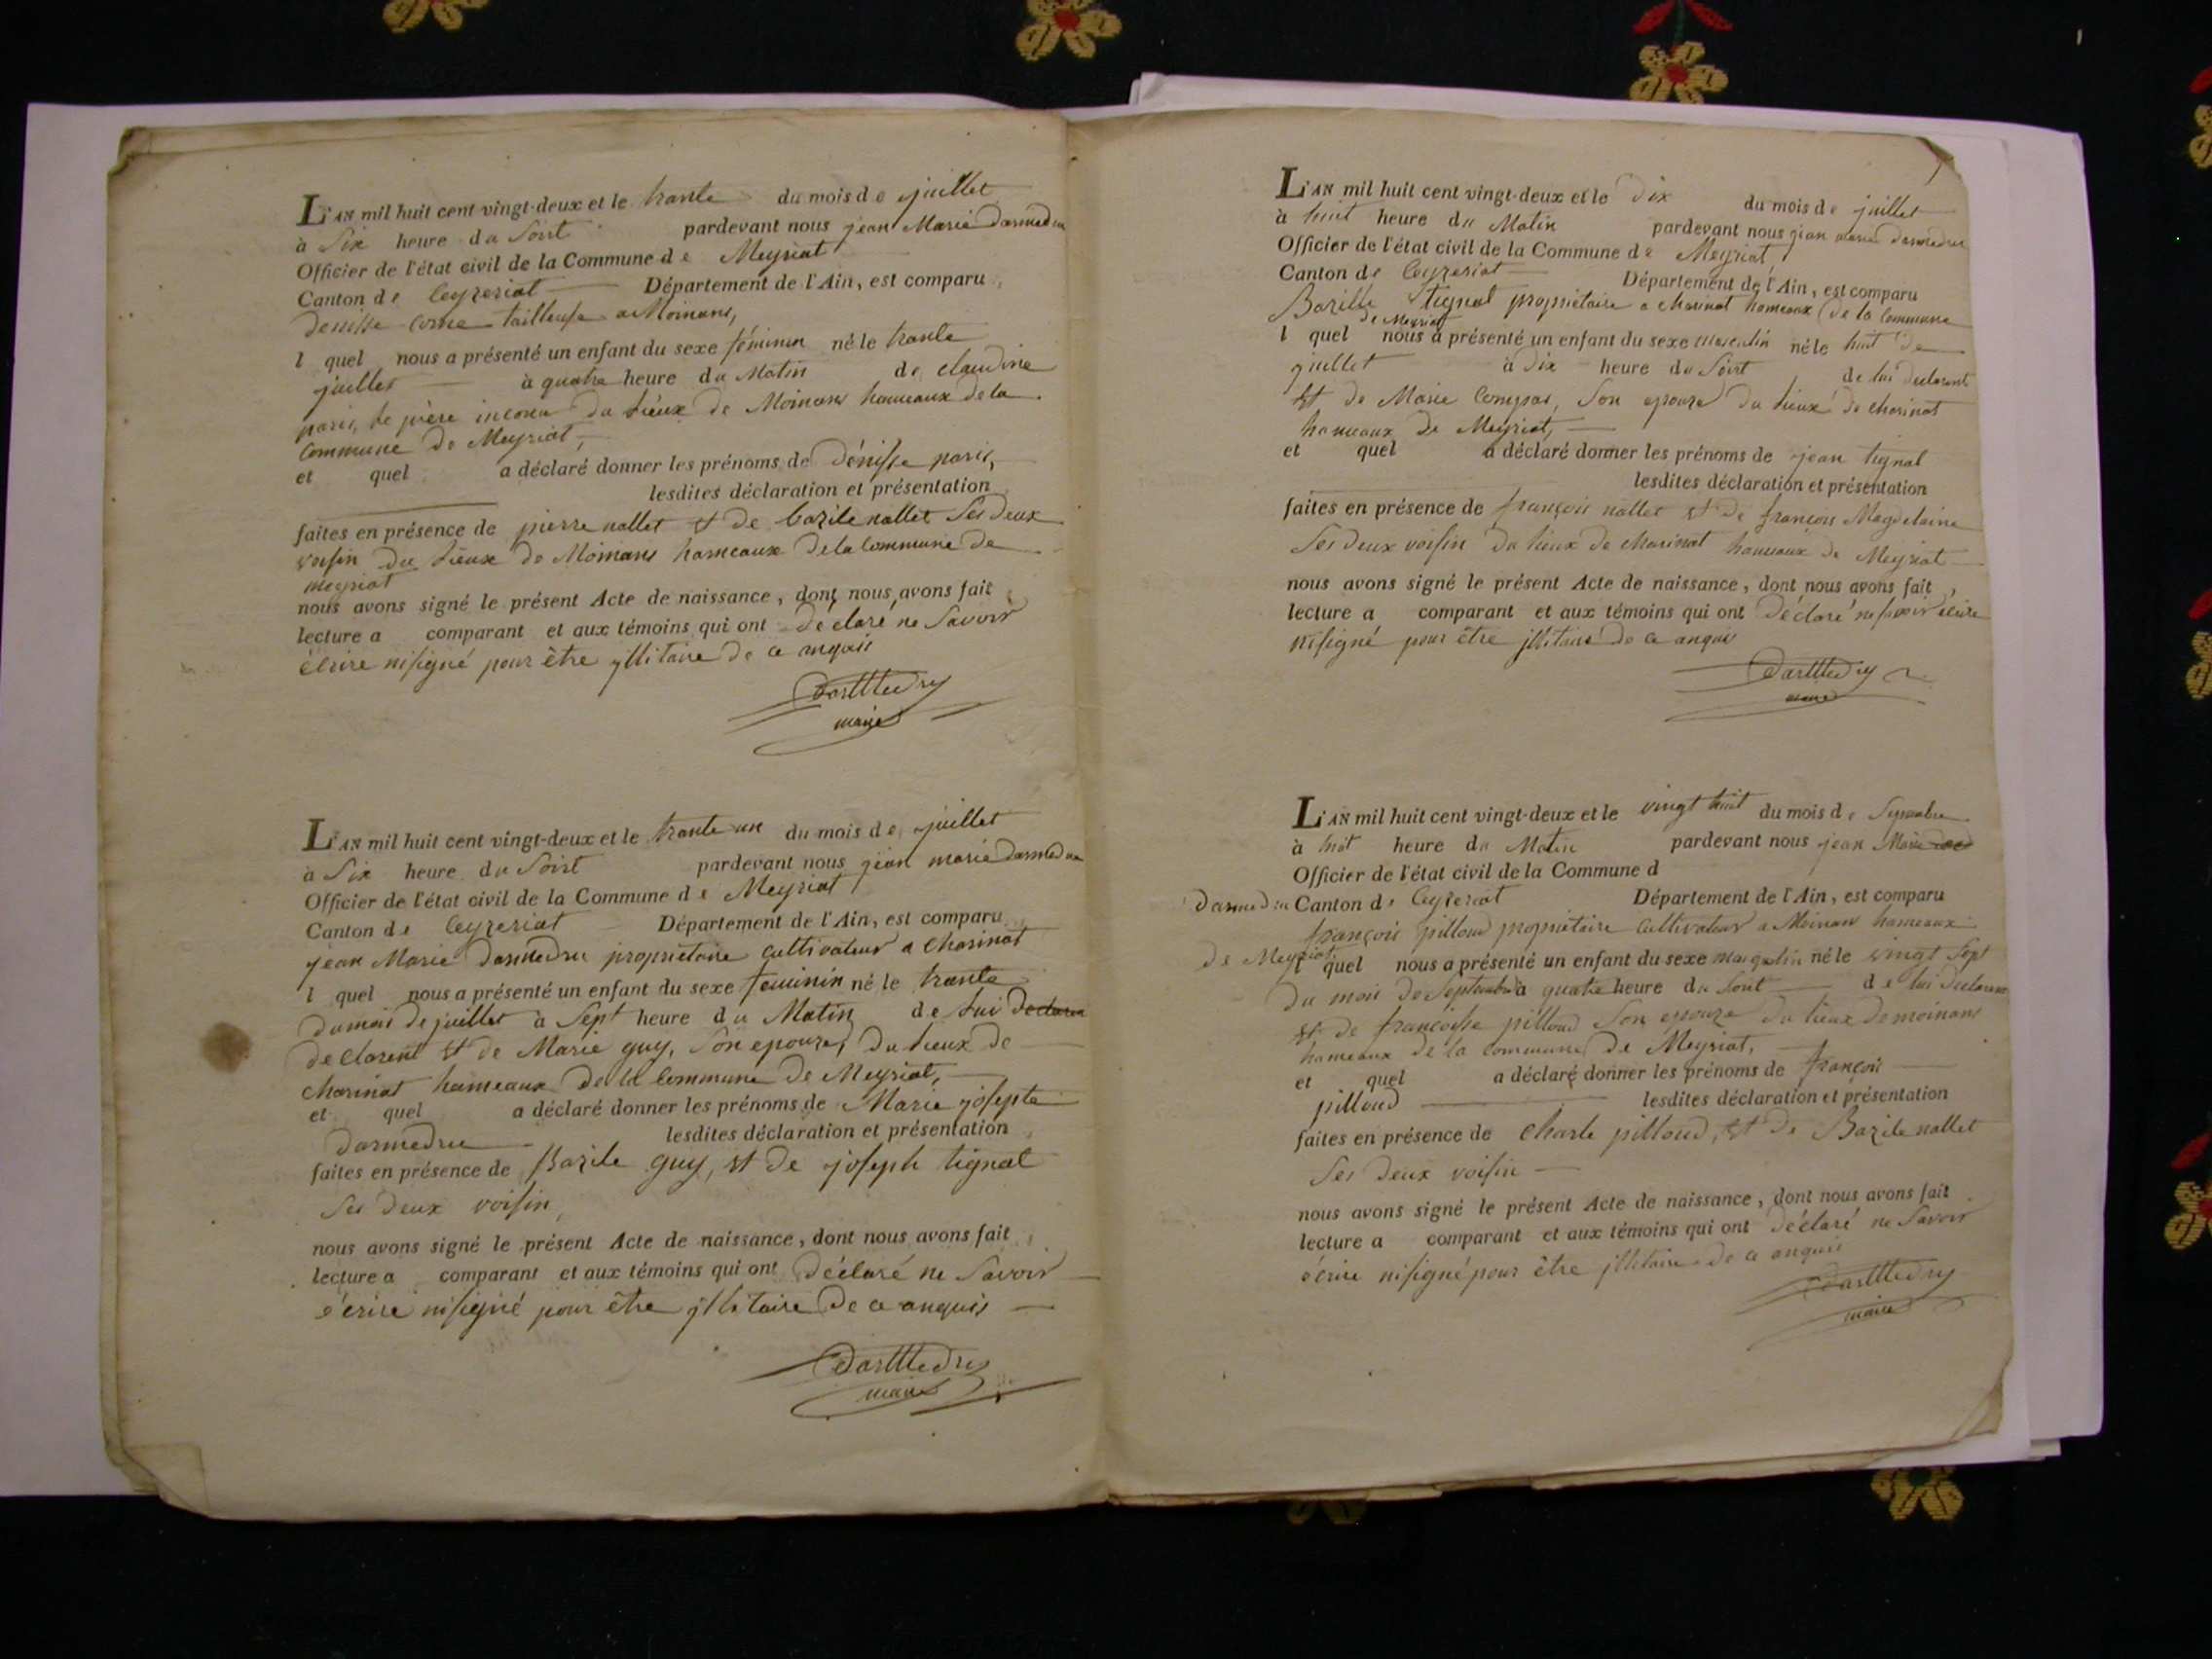 L'AN mil huit cent vingt-deux et le trante du mois de juillet
à Six heure du Soirt pardevant nous jean Marie Darmedru
Officier de l'état civil de la Commune de Meyriat
Canton de Ceyzeriat Département de l'Ain, est comparu
Denisse come tailleuse a Moinans,
l quel nous a présenté un enfant du sexe féminin né le trante
juillet à quatre heure du Matin de claudine
paris, de père inconu du Lieux de Moinans hameaux de la
commune de Meyriat,
et quel a déclaré donner les prénoms de Dénisse paris,
lesdites déclaration et présentation
faites en présence de pierre nallet et de bazile nallet Ses deux
voisin du Lieux de Moinans hameaux de la Commune de
meyriat
nous avons signé le présent Acte de naissance, dont nous avons fait
lecture a comparant et aux témoins qui ont déclaré ne Savoir
écrire ni signé pour être jllitaire de ce anquis
Darmedru
maire
L'AN mil huit cent vingt-deux et le trante un du mois de juillet
à Six heure du Soirt pardevant nous jean marie Darmedru
Officier de l'état civil de la Commune de Meyriat
Canton de Ceyzeriat Département de l'Ain, est comparu
jean Marie Darmedru propriétaire cultivateur a Charinat
l quel nous a présenté un enfant du sexe féminin né le trante
du mois de juillet à Sept heure du Matin de Lui
declarent et de Marie guy, Son epouze, du Lieux de
Charinat hameaux de la Commune de Meyriat,
et quel a déclaré donner les prénoms de Marie josepte
Darmedru lesdites déclaration et présentation
faites en présence de Bazile guy, et de joseph tignat
Ses deux voisin,
nous avons signé le présent Acte de naissance, dont nous avons fait
lecture a comparant et aux témoins qui ont déclaré ne Savoir
écrire ni signé pour être jllitaire de ce anquis
Darmedru
maire
L'AN mil huit cent vingt-deux et le dix du mois de juillet
à huit heure du Matin pardevant nous jean marie Darmedru
Officier de l'état civil de la Commune de Meyriat
Canton de Ceyzeriat Département de l'Ain, est comparu
Bazille tignat propriétaire a charinat hameaux de la Commune
de Meyriat
l quel nous a présenté un enfant du sexe masculin né le huit de
juillet à dix heure du Soirt de lui declarant
et de Marie Compas, Son epouze du Lieux de charinat
hameaux de Meyriat,
et quel a déclaré donner les prénoms de jean tignat
lesdites déclaration et présentation
faites en présence de françois nallet et de françois Magdelaine
Ses deux voisin du Lieux de charinat hameaux de Meyriat
nous avons signé le présent Acte de naissance, dont nous avons fait
lecture a comparant et aux témoins qui ont déclaré ne savoir écrire
ni signé pour être jllitaire de ce anquis
Darmedru
maire
L'AN mil huit cent vingt-deux et le vingt huit du mois de Septembre
à huit heure du Matin pardevant nous jean Marie
Officier de l'état civil de la Commune d
Darmedru Canton de Ceyzeriat Département de l'Ain, est comparu
françois pilloud propriétaire Cultivateur a Moinans hameaux
de Meyriat,
l quel nous a présenté un enfant du sexe masqulin né le vingt Sept
du mois de Septembre à quatre heure du Soirt de lui declarant
et de françoisse pilloud Son epouze du Lieux de moinans
hameaux de la commune de Meyriat,
et quel a déclaré donner les prénoms de françois
pilloud lesdites déclaration et présentation
faites en présence de Charle pilloud, et de Bazile nallet
Ses deux voisin
nous avons signé le présent Acte de naissance, dont nous avons fait
lecture a comparant et aux témoins qui ont déclaré ne Savoir
écrire ni signé pour être jllitaire de ce anquis
Darmedru
maire